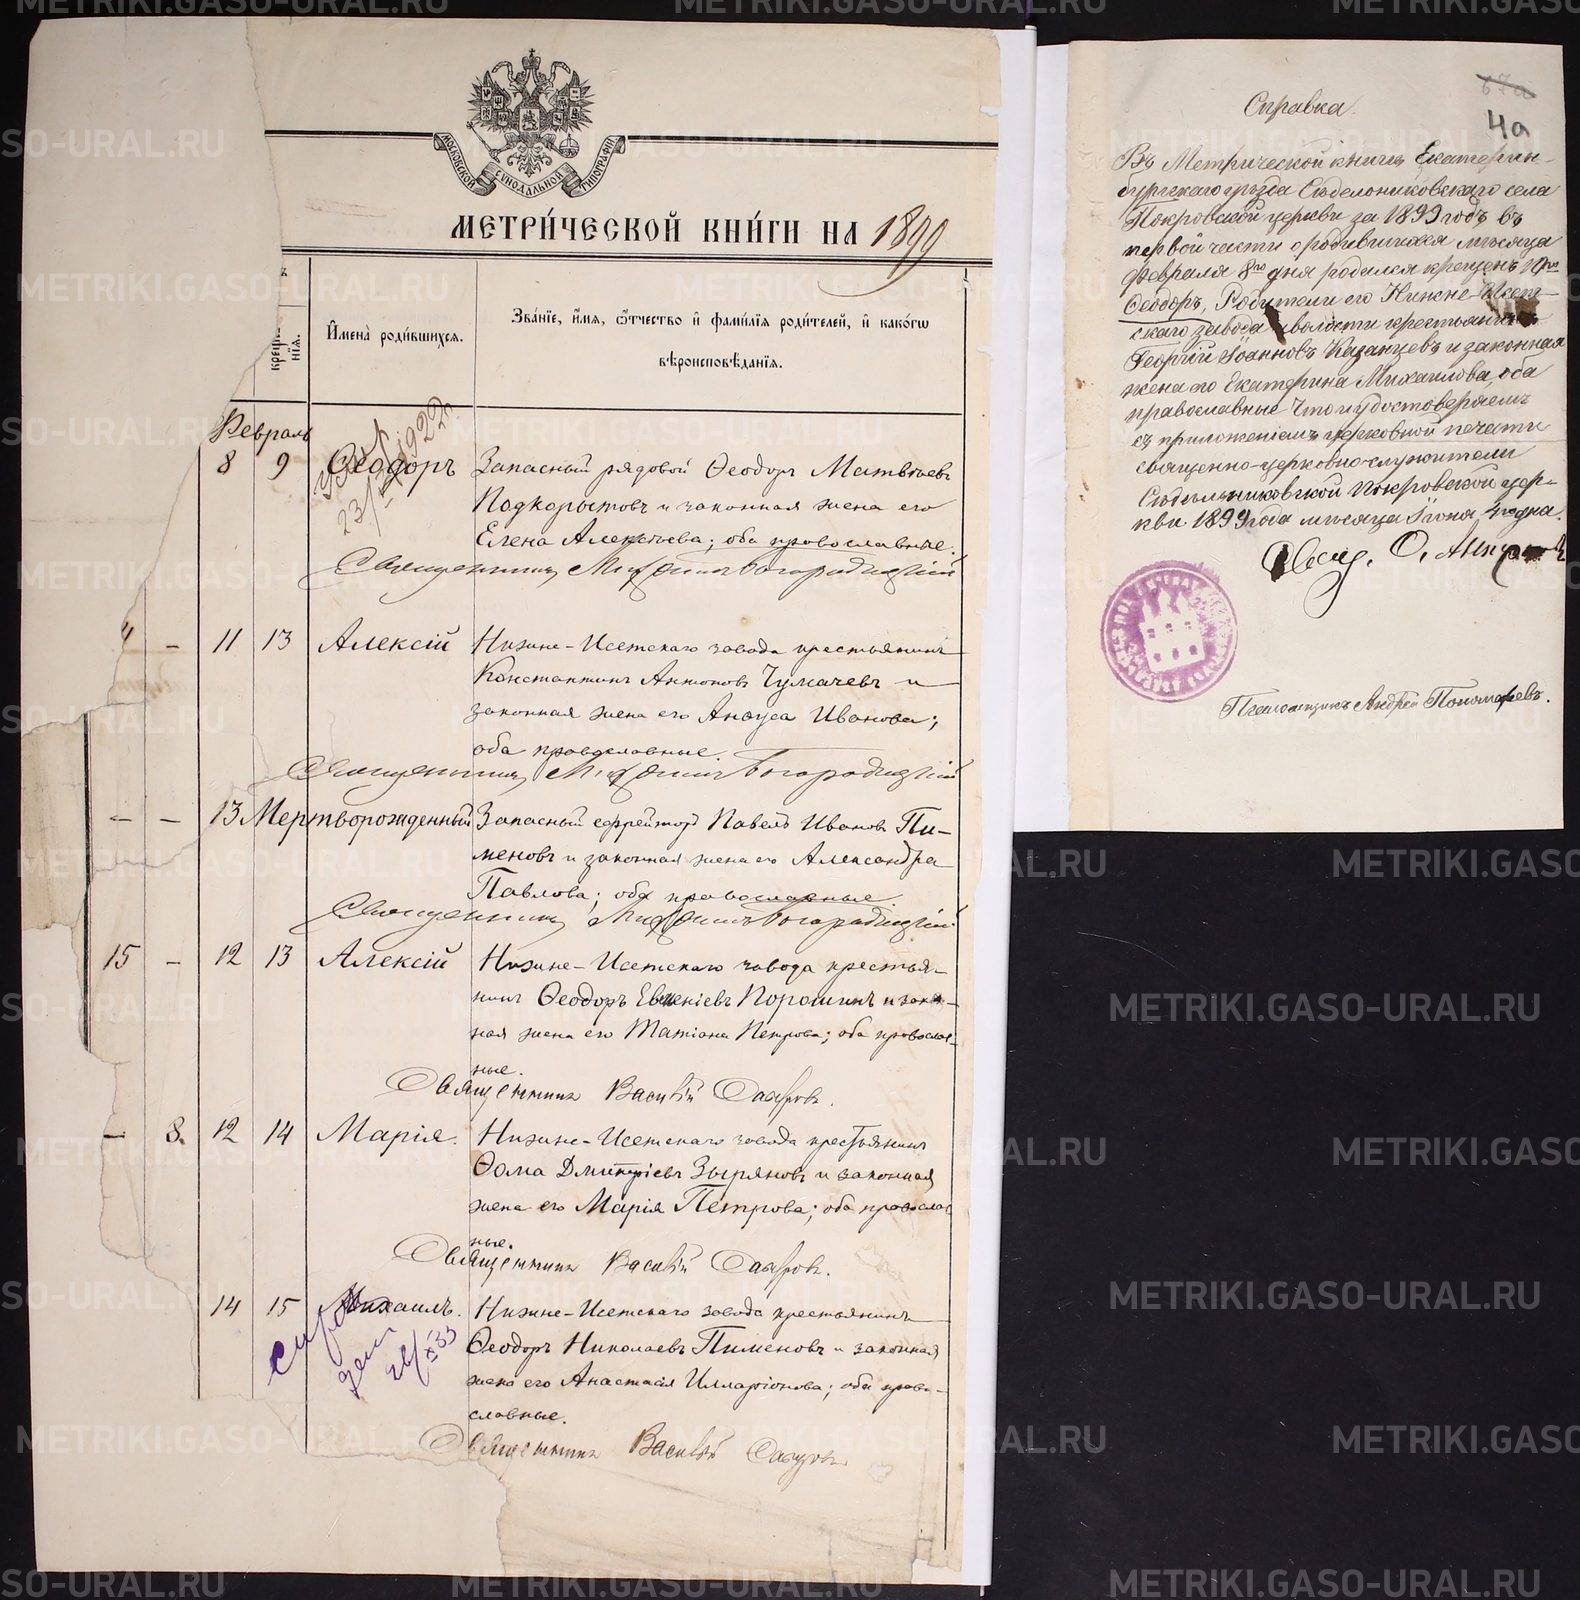 МОСКОВСКОЙ СѴНОДАЛЬНОЙ ТИПОГРАФІИ
МЕТРИ́ЧЕСКОЙ КНИ́ГИ НА 1899
крещенія.
И҆мена̀ роди́вшихсѧ.
Зва́нїе, и҆́мѧ, ѻ҆́тчество и҆ фами́лїѧ роди́телей, и҆ како́гѡ
вѣроисповѣ́данїѧ.
Февраль
8 9 Ѳеодоръ Запасный рядовой Ѳеодоръ Матвѣевъ
1922г.
Подкорытовъ и законная жена его
Елена Алексѣева; оба православные.
Священникъ Михаилъ Богородицкій
11 13 Алексій Нижне-Исетскаго завода крестьянинъ
Константинъ Антоновъ Чумачевъ и
законная жена его Анѳуса Иванова;
оба православные.
Священникъ Михаилъ Богородицкій
– – 13 Мертворожденный Запасный ефрейторъ Павелъ Ивановъ Пи-
меновъ и законная жена его Александра
Павлова; оба православные.
Священникъ Михаилъ Богородицкій
15 – 12 13 Алексій Нижне-Исетскаго завода крестья-
нинъ Ѳеодоръ Евгеніевъ Порошинъ и закон-
ная жена его Татіана Петрова; оба православ-
ные.
Священникъ Василій
– 8. 12 14 Марія. Нижне-Исетскаго завода крестьянинъ
Ѳома Дмитріевъ Зыряновъ и законная
жена его Марія Петрова; оба православ-
ные.
Священникъ Василій
14 15 Михаилъ. Нижне-Исетскаго завода крестьянинъ
Ѳеодоръ Николаевъ Пименовъ и законная
жена его Анастасія Илларіонова; оба право-
славные.
Священникъ Василій
67а
4а
Справка.
Въ Метрической книгѣ Екатерин-
бургскаго уѣзда Сѣдельниковскаго села
Покровской церкви за 1899 годъ въ
первой части о родившихся мѣсяца
Февраля 8го дня родился крещенъ
Ѳеодоръ, Родители его Нижне-Исет-
скаго завода и волости крестьянинъ
Георгій Іоанновъ Казанцевъ и законная
жена его Екатерина Михаилова, оба
православные Что и удостовѣряемъ
съ приложеніемъ церковной печати
священно-церковно-служители
Сѣдельниковской Покровской цер-
кви 1899 года мѣсяца Іюня 4го дня.
Свящ. О.
Псаломщикъ Андрей Пономаревъ.
METRIKI.GASO-URAL.RU